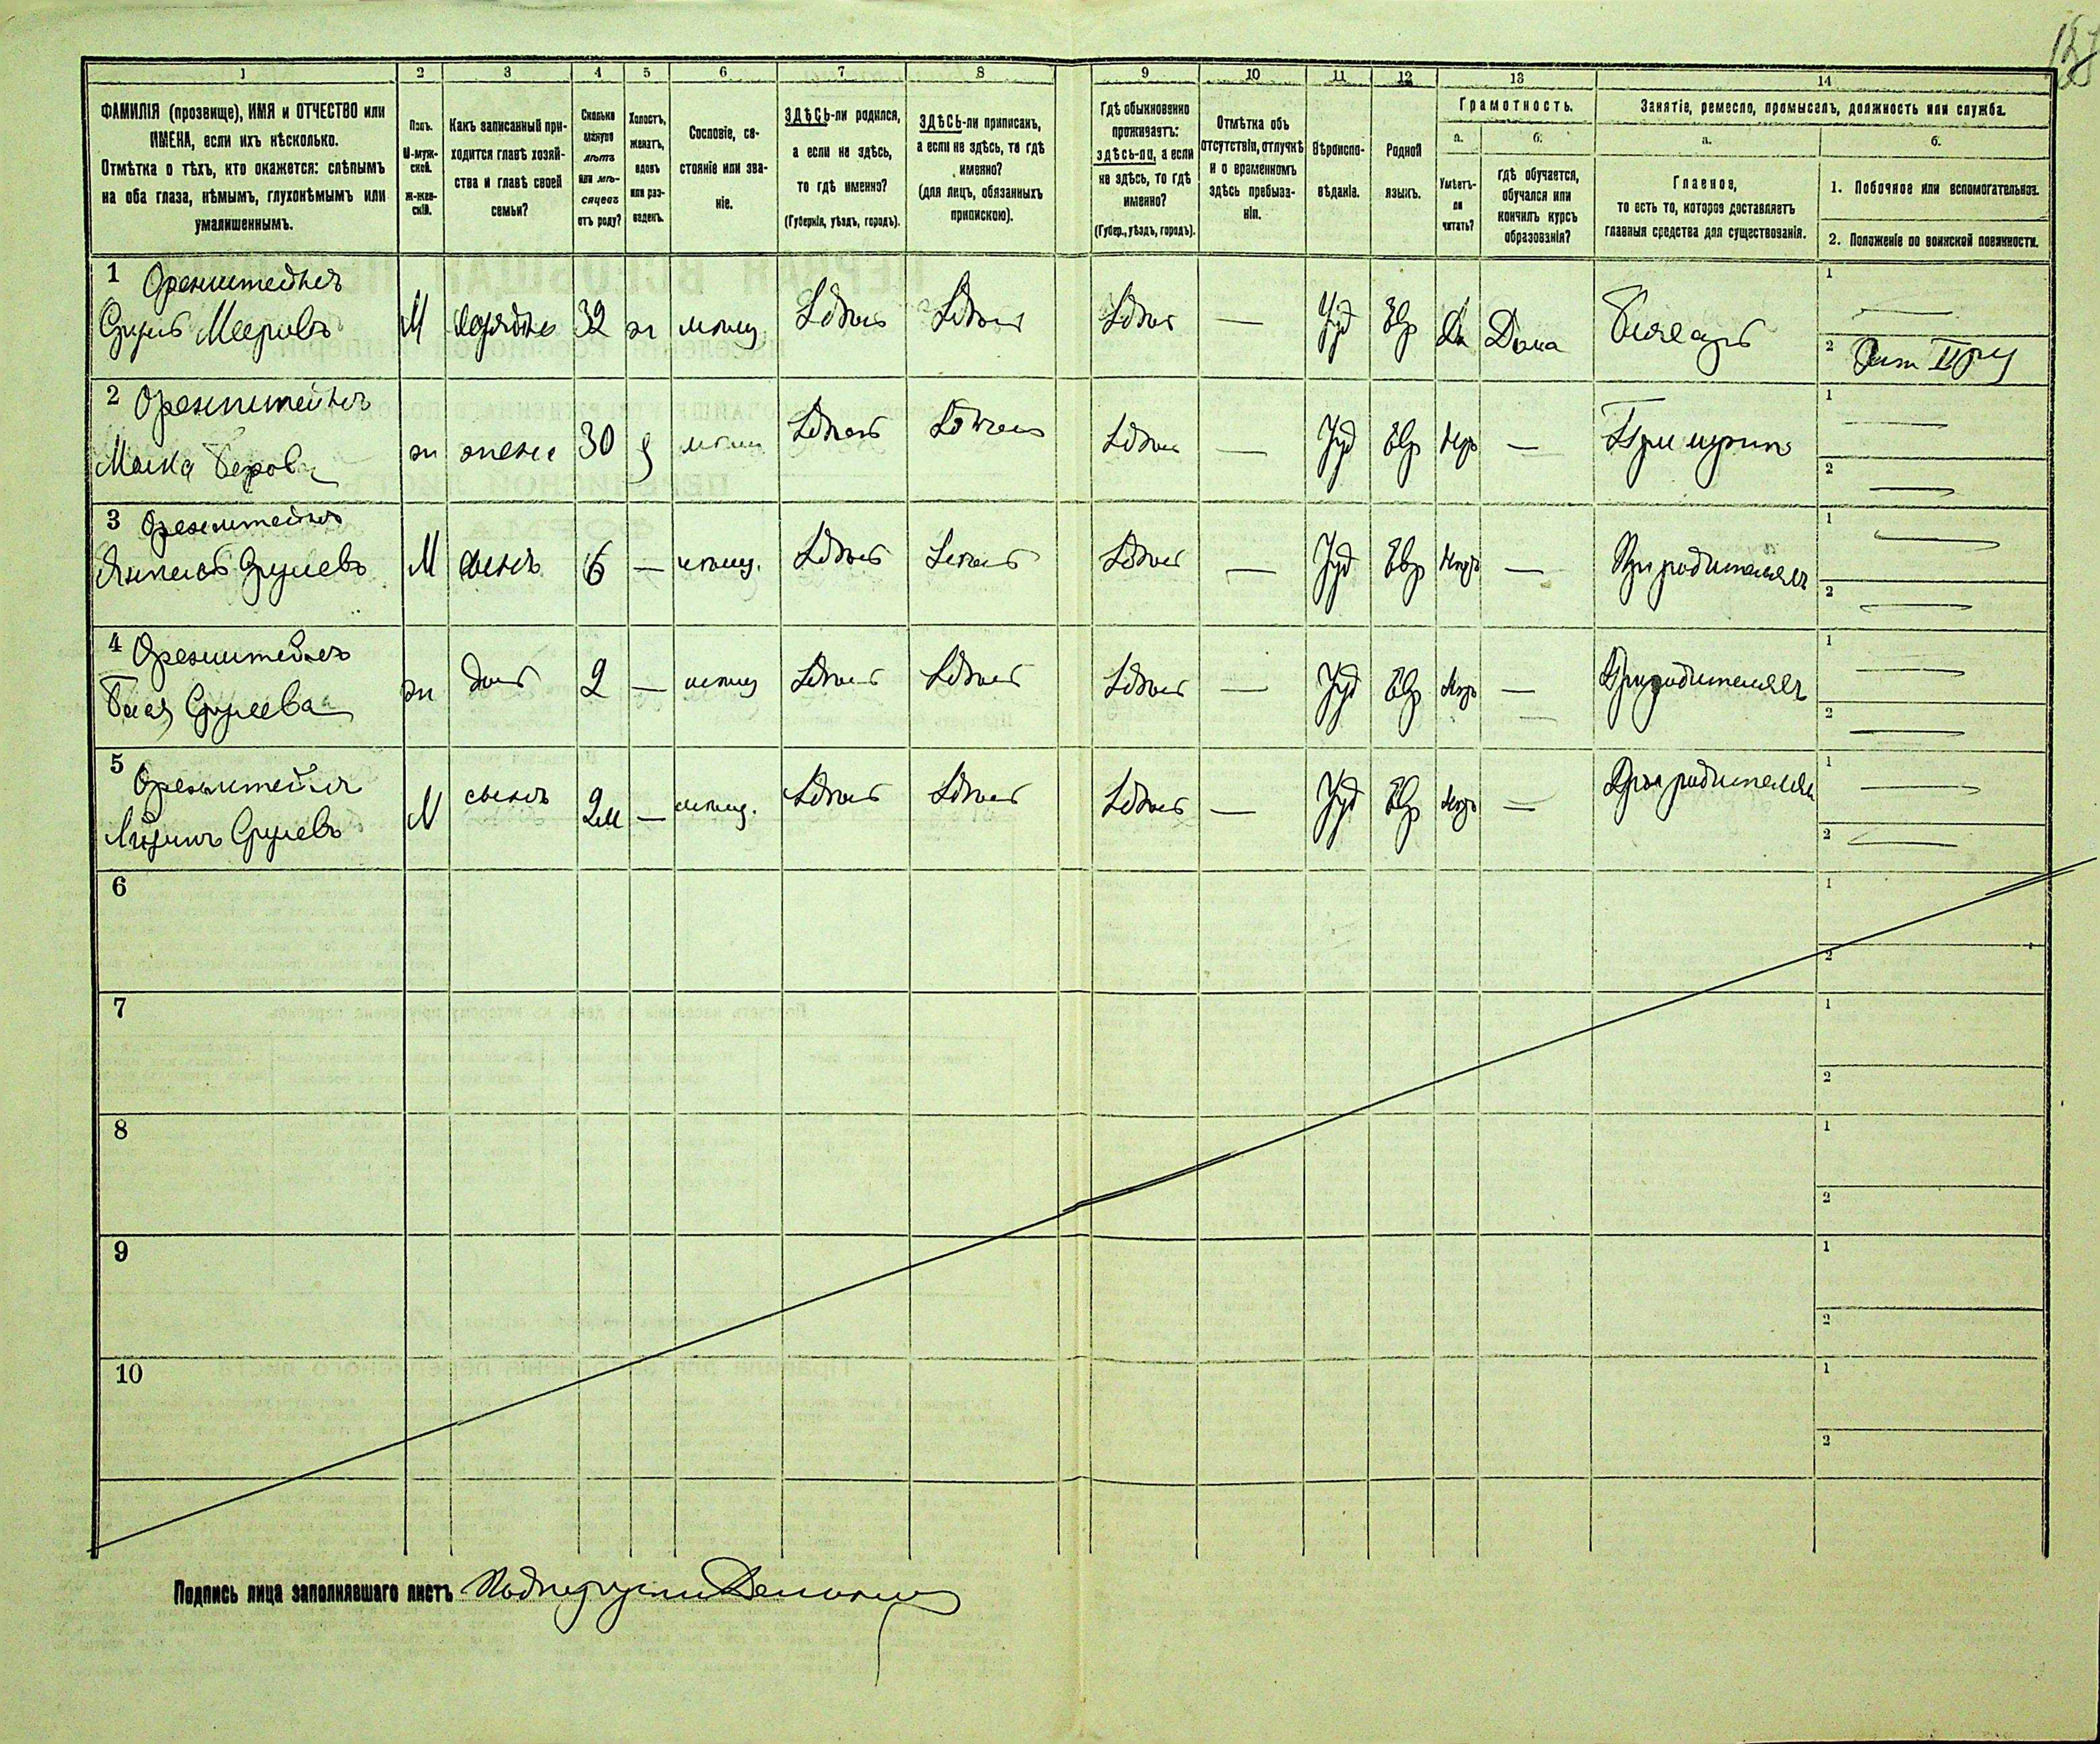 1 2 3 4 5 6 7 8 9 10 11 12 13 14
ФАМИЛІЯ (прозвище), ИМЯ и ОТЧЕСТВО или
ИМЕНА, если ихъ нѣсколько.
Отмѣтка о тѣхъ, кто окажется: слѣпымъ
на оба глаза, нѣмымъ, глухонѣмымъ или
умалишеннымъ.
Полъ.
М-муж-
ской.
ж-жен-
скій.
Какъ записанный при-
ходится главѣ хозяй-
ства и главѣ своей
семьи?
Сколько
минуло
лѣтъ
или мѣ-
сяцевъ
отъ роду?
Холостъ,
женатъ,
вдовъ
или раз-
веденъ.
Сословіе, со-
стояніе или зва-
ніе.
ЗДѢСЬ-ли родился,
а если не здѣсь,
то гдѣ именно?
(Губернія, уѣздъ, городъ).
ЗДѢСЬ-ли приписанъ,
а если не здѣсь, то гдѣ
именно?
(для лицъ, обязанныхъ
припискою).
Гдѣ обыкновенно
проживаетъ:
здѣсь-ли, а если
не здѣсь, то гдѣ
именно?
(Губер., уѣздъ, городъ).
Отмѣтка объ
отсутствіи, отлучкѣ
и о временномъ
здѣсь пребыва-
ніи.
Вѣроиспо-
вѣданіе.
Родной
языкъ.
Грамотность.
а.
Умѣетъ-
ли
читать?
б.
гдѣ обучается,
обучался или
кончилъ курсъ
образованія?
Занятіе, ремесло, промыселъ, должность или служба.
а.
Главное,
то есть то, которое доставляетъ
главныя средства для существованія.
б.
1. Побочное или вспомогательное.
2. Положеніе по воинской повинности.
1 Оренштейнъ
Сруль Мееровъ
М 32 ж мѣщ. Здѣсь Здѣсь Здѣсь — Іуд Евр Да Дома
1 —
2
2 Оренштейнъ
ж жена 30 мѣщ Здѣсь Здѣсь Здѣсь — Іуд Евр — При мужѣ
1 —
2 —
3 Оренштейнъ
Срулевъ
М сынъ 6 — мѣщ. Здѣсь Здѣсь Здѣсь — Іуд Евр — При родителяхъ
1 —
2 —
4 Оренштейнъ
Срулева
ж дочь 2 — мѣщ Здѣсь Здѣсь Здѣсь — Іуд Евр — При родителяхъ
1 —
2 —
5 Оренштейнъ
Срулевъ
М сынъ 2м — мѣщ. Здѣсь Здѣсь Здѣсь — Іуд Евр — При родителяхъ
1 —
2 —
6
1
2
7
1
2
8
1
2
9
1
2
10
1
2
Подпись лица заполнявшаго листъ